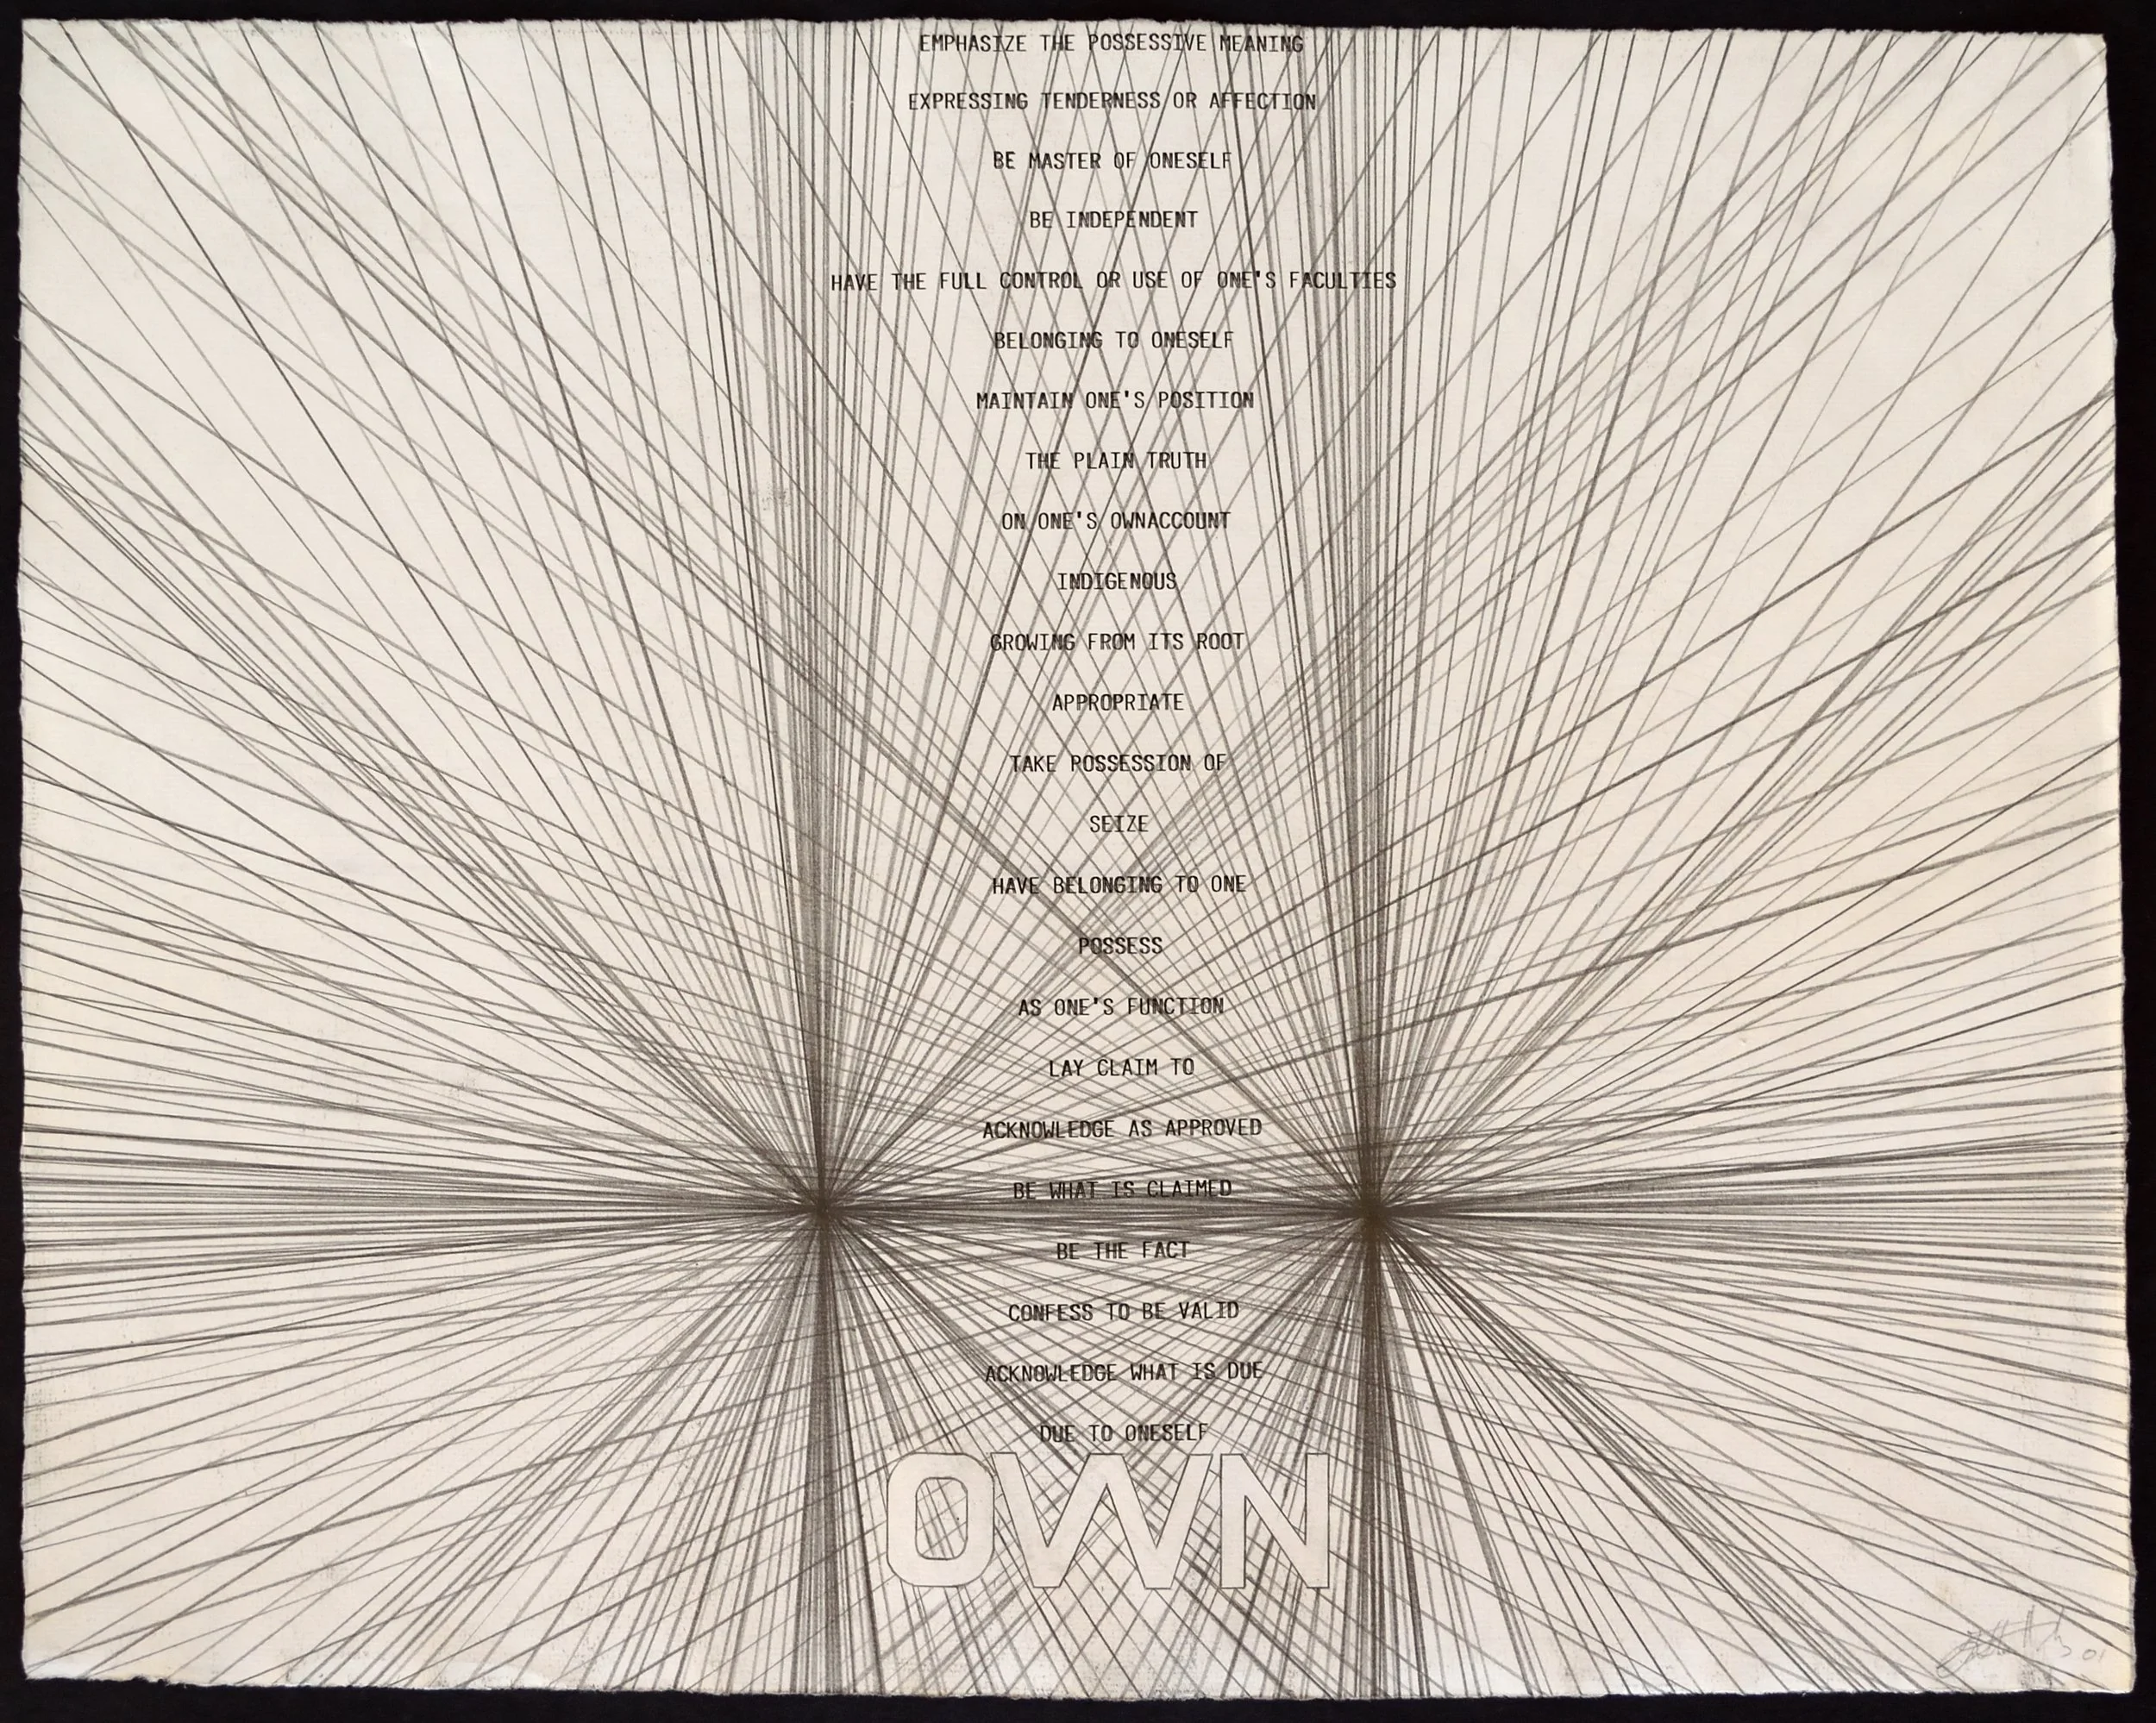 EMPHASIZE THE POSSESSIVE MEANING
EXPRESSING TENDERNESS OR AFFECTION
BE MASTER OF ONESELF
BE INDEPENDENT
HAVE THE FULL CONTROL OR USE OF ONE'S FACULTIES
BELONGING TO ONESELF
MAINTAIN ONE'S POSITION
THE PLAIN TRUTH
ON ONE'S OWNACCOUNT
INDIGENOUS
GROWING FROM ITS ROOT
APPROPRIATE
TAKE POSSESSION OF
SEIZE
HAVE BELONGING TO ONE
POSSESS
AS ONE'S FUNCTION
LAY CLAIM TO
ACKNOWLEDGE AS APPROVED
BE WHAT IS CLAIMED
BE THE FACT
CONFESS TO BE VALID
ACKNOWLEDGE WHAT IS DUE
DUE TO ONESELF
OWN